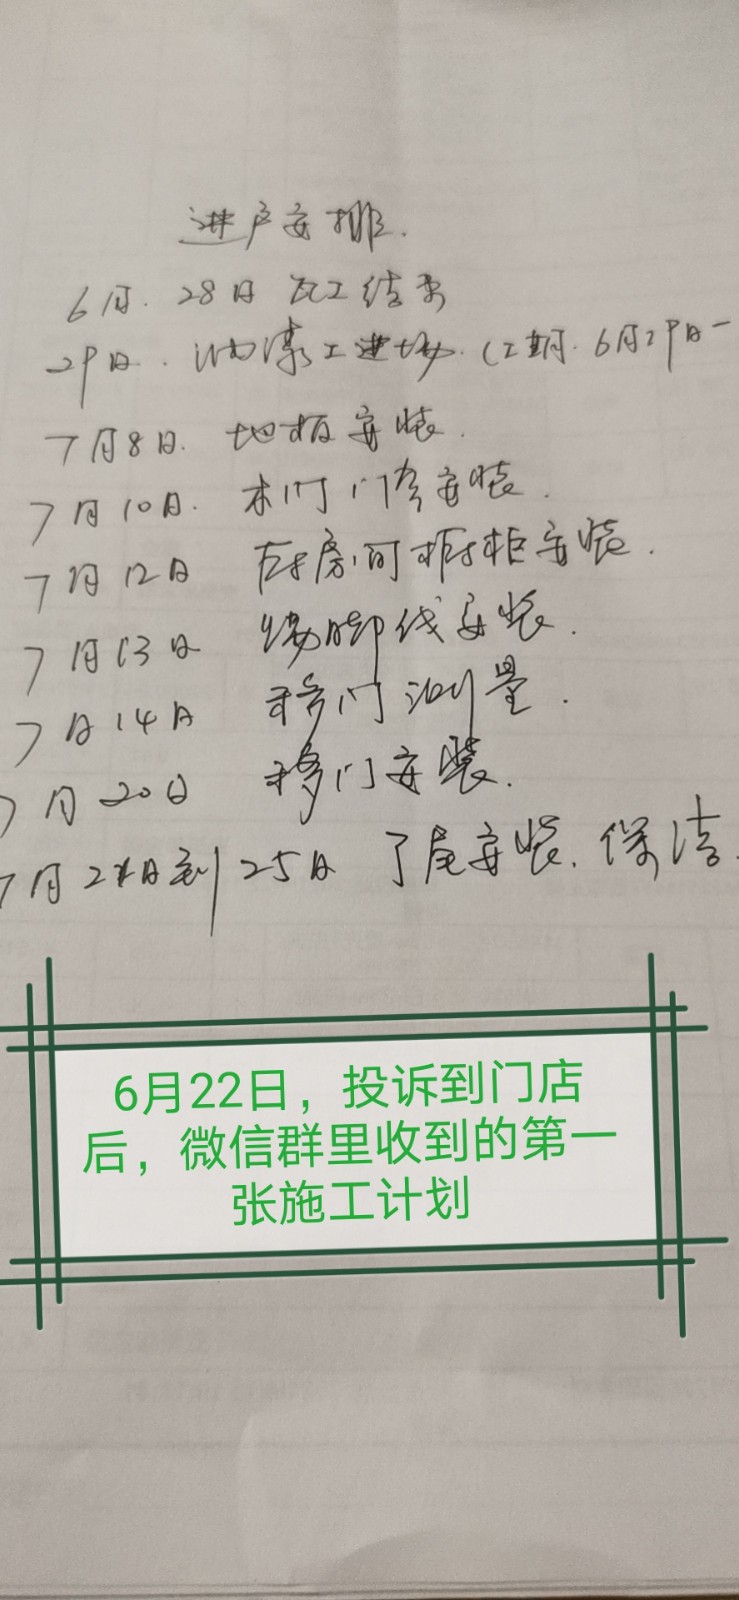 进户安排.
6月.28日 瓦工结束
29日.油漆工进场.(工期.6月29日一
7月8日.地板安装.
7月10日.木门门套安装.
7月12日 厨房间橱柜安装.
7月13日 踢脚线安装.
7月14日 移门测量.
7月20日 移门安装.
7月21日到25日 了尾安装.保洁.
6月22日，投诉到门店
后，微信群里收到的第一
张施工计划